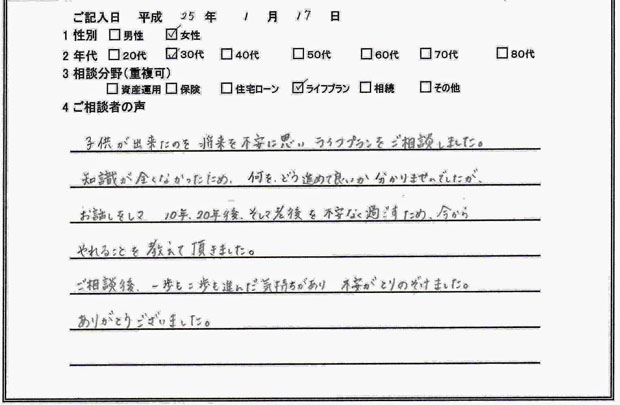 ご記入日 平成 25 年 1 月 17 日
1 性別 □男性 ☑女性
2 年代 □20代 ☑30代 □40代 □50代 □60代 □70代 □80代
3 相談分野(重複可)
□資産運用 □保険 □住宅ローン ☑ライフプラン □相続 □その他
4 ご相談者の声
子供が出来たのを 将来を不安に思い ライフプランをご相談しました。
知識が全くなかったため、何を、どう進めて良いか 分かりませんでしたが、
お話しをして 10年、20年後、そして老後を 不安なく過ごすため、今から
やれることを 教えて 頂きました。
ご相談後、一歩も二歩も進んだ気持ちがあり 不安がとりのぞけました。
ありがとうございました。